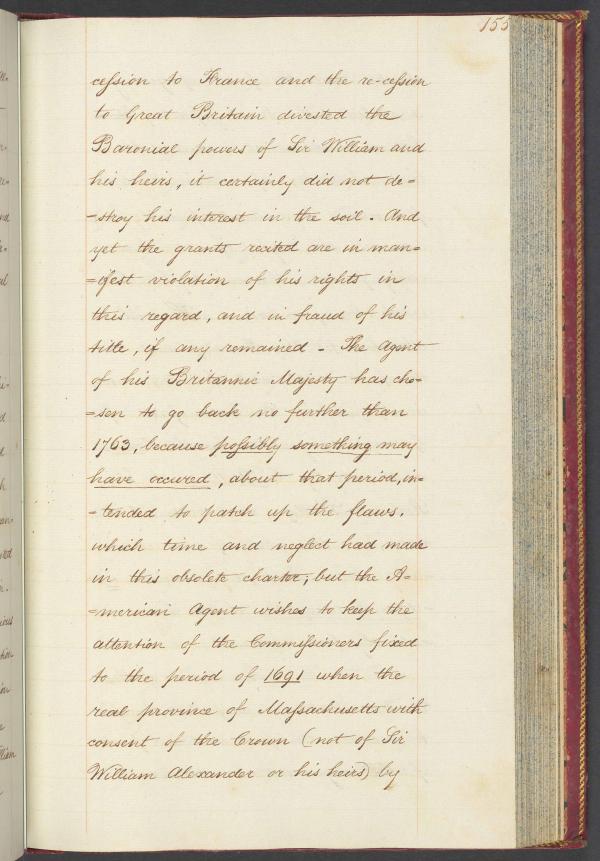 155
cession to France and the re-cession
to Great Britain divested the
Baronial powers of Sir William and
his heirs, it certainly did not de=
=stroy his interest in the soil. And
yet the grants recited are in man=
=ifest violation of his rights in
this regard, and in fraud of his
title, if any remained - The Agent
of his Britannic Majesty has cho=
=sen to go back no further than
1763, because possibly something may
have occured, about that period, in=
=tended to patch up the flaws.
which time and neglect had made
in this obsolete charter; but the A=
=merican Agent wishes to keep the
attention of the Commissioners fixed
to the period of 1691 when the
real province of Massachusetts with
consent of the Crown (not of Sir
William Alexander or his heirs) by